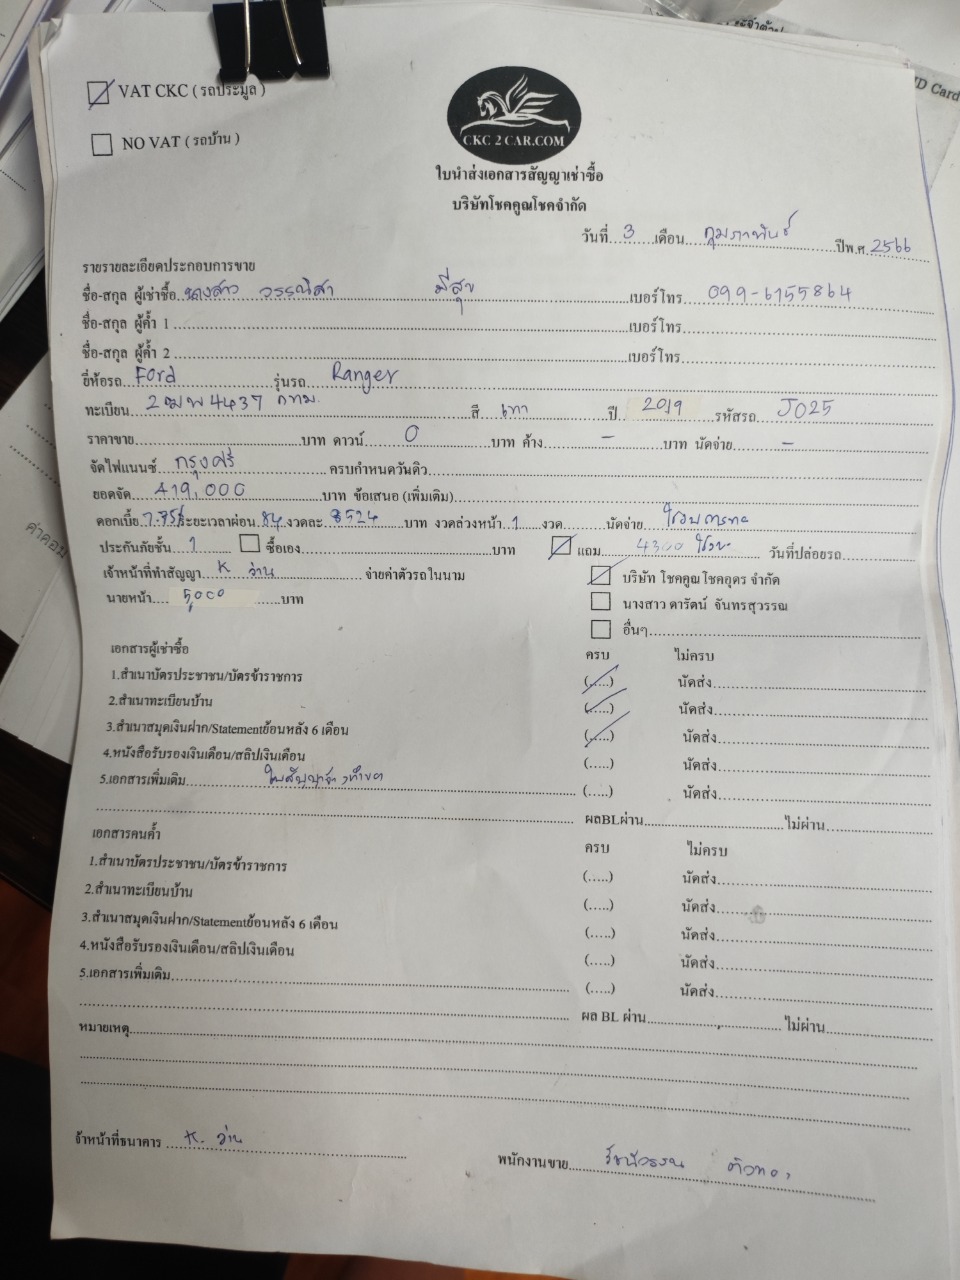 VAT CKC ( รถประมูล )
NO VAT ( รถบ้าน )
CKC 2 CAR.COM
ใบนำส่งเอกสารสัญญาเช่าซื้อ
บริษัทโชคคูณโชคจำกัด
วันที่ 3 เดือน กุมภาพันธ์ ปีพ.ศ. 2566
รายรายละเอียดประกอบการขาย
ชื่อ-สกุล ผู้เช่าซื้อ นางสาว วรรณิศา มีสุข เบอร์โทร 099-6155864
ชื่อ-สกุล ผู้ค้ำ 1 เบอร์โทร
ชื่อ-สกุล ผู้ค้ำ 2 เบอร์โทร
ยี่ห้อรถ Ford รุ่นรถ Ranger
ทะเบียน 2ฒพ 4437 กทม. สี เทา ปี 2019 รหัสรถ J025
ราคาขาย บาท ดาวน์ 0 บาท ค้าง - บาท นัดจ่าย -
จัดไฟแนนซ์ กรุงศรี ครบกำหนดวันดิว
ยอดจัด 419,000 บาท ข้อเสนอ (เพิ่มเติม)
ดอกเบี้ย ระยะเวลาผ่อน 84 งวดละ 8524 บาท งวดล่วงหน้า 1 งวด นัดจ่าย
ประกันภัยชั้น 1 ซื้อเอง บาท แถม วันที่ปล่อยรถ
เจ้าหน้าที่ทำสัญญา K ว่าน จ่ายค่าตัวรถในนาม บริษัท โชคคูณโชคอุดร จำกัด
นายหน้า 5,000 บาท นางสาว ดารัตน์ จันทรสุวรรณ
อื่นๆ
เอกสารผู้เช่าซื้อ ครบ ไม่ครบ
1.สำเนาบัตรประชาชน/บัตรข้าราชการ (.....) นัดส่ง
2.สำเนาทะเบียนบ้าน (.....) นัดส่ง
3.สำเนาสมุดเงินฝาก/Statementย้อนหลัง 6 เดือน (.....) นัดส่ง
4.หนังสือรับรองเงินเดือน/สลิปเงินเดือน (.....) นัดส่ง
5.เอกสารเพิ่มเติม (.....) นัดส่ง
ผลBLผ่าน ไม่ผ่าน
เอกสารคนค้ำ ครบ ไม่ครบ
1.สำเนาบัตรประชาชน/บัตรข้าราชการ (.....) นัดส่ง
2.สำเนาทะเบียนบ้าน (.....) นัดส่ง
3.สำเนาสมุดเงินฝาก/Statementย้อนหลัง 6 เดือน (.....) นัดส่ง
4.หนังสือรับรองเงินเดือน/สลิปเงินเดือน (.....) นัดส่ง
5.เอกสารเพิ่มเติม (.....) นัดส่ง
ผล BL ผ่าน ไม่ผ่าน
หมายเหตุ
จ้าหน้าที่ธนาคาร K. ว่าน
พนักงานขาย